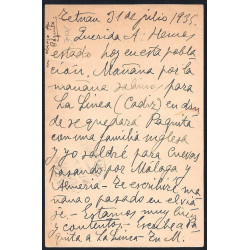 Tetuan 31 de julio 1935.
Querida A. Hemos
estado hoy en esta pobla
ción. Mañana por la
mañana salimos para
La Línea (Cadiz) en don
de se quedará Paquita
con una familia inglesa
y yo saldré para Cuevas
pasando por Málaga y
Almería - Te escribiré ma
ñana o pasado en el via
je. - Estamos muy bien
y contentos. - Escribe a
quita a La Linea - En M.